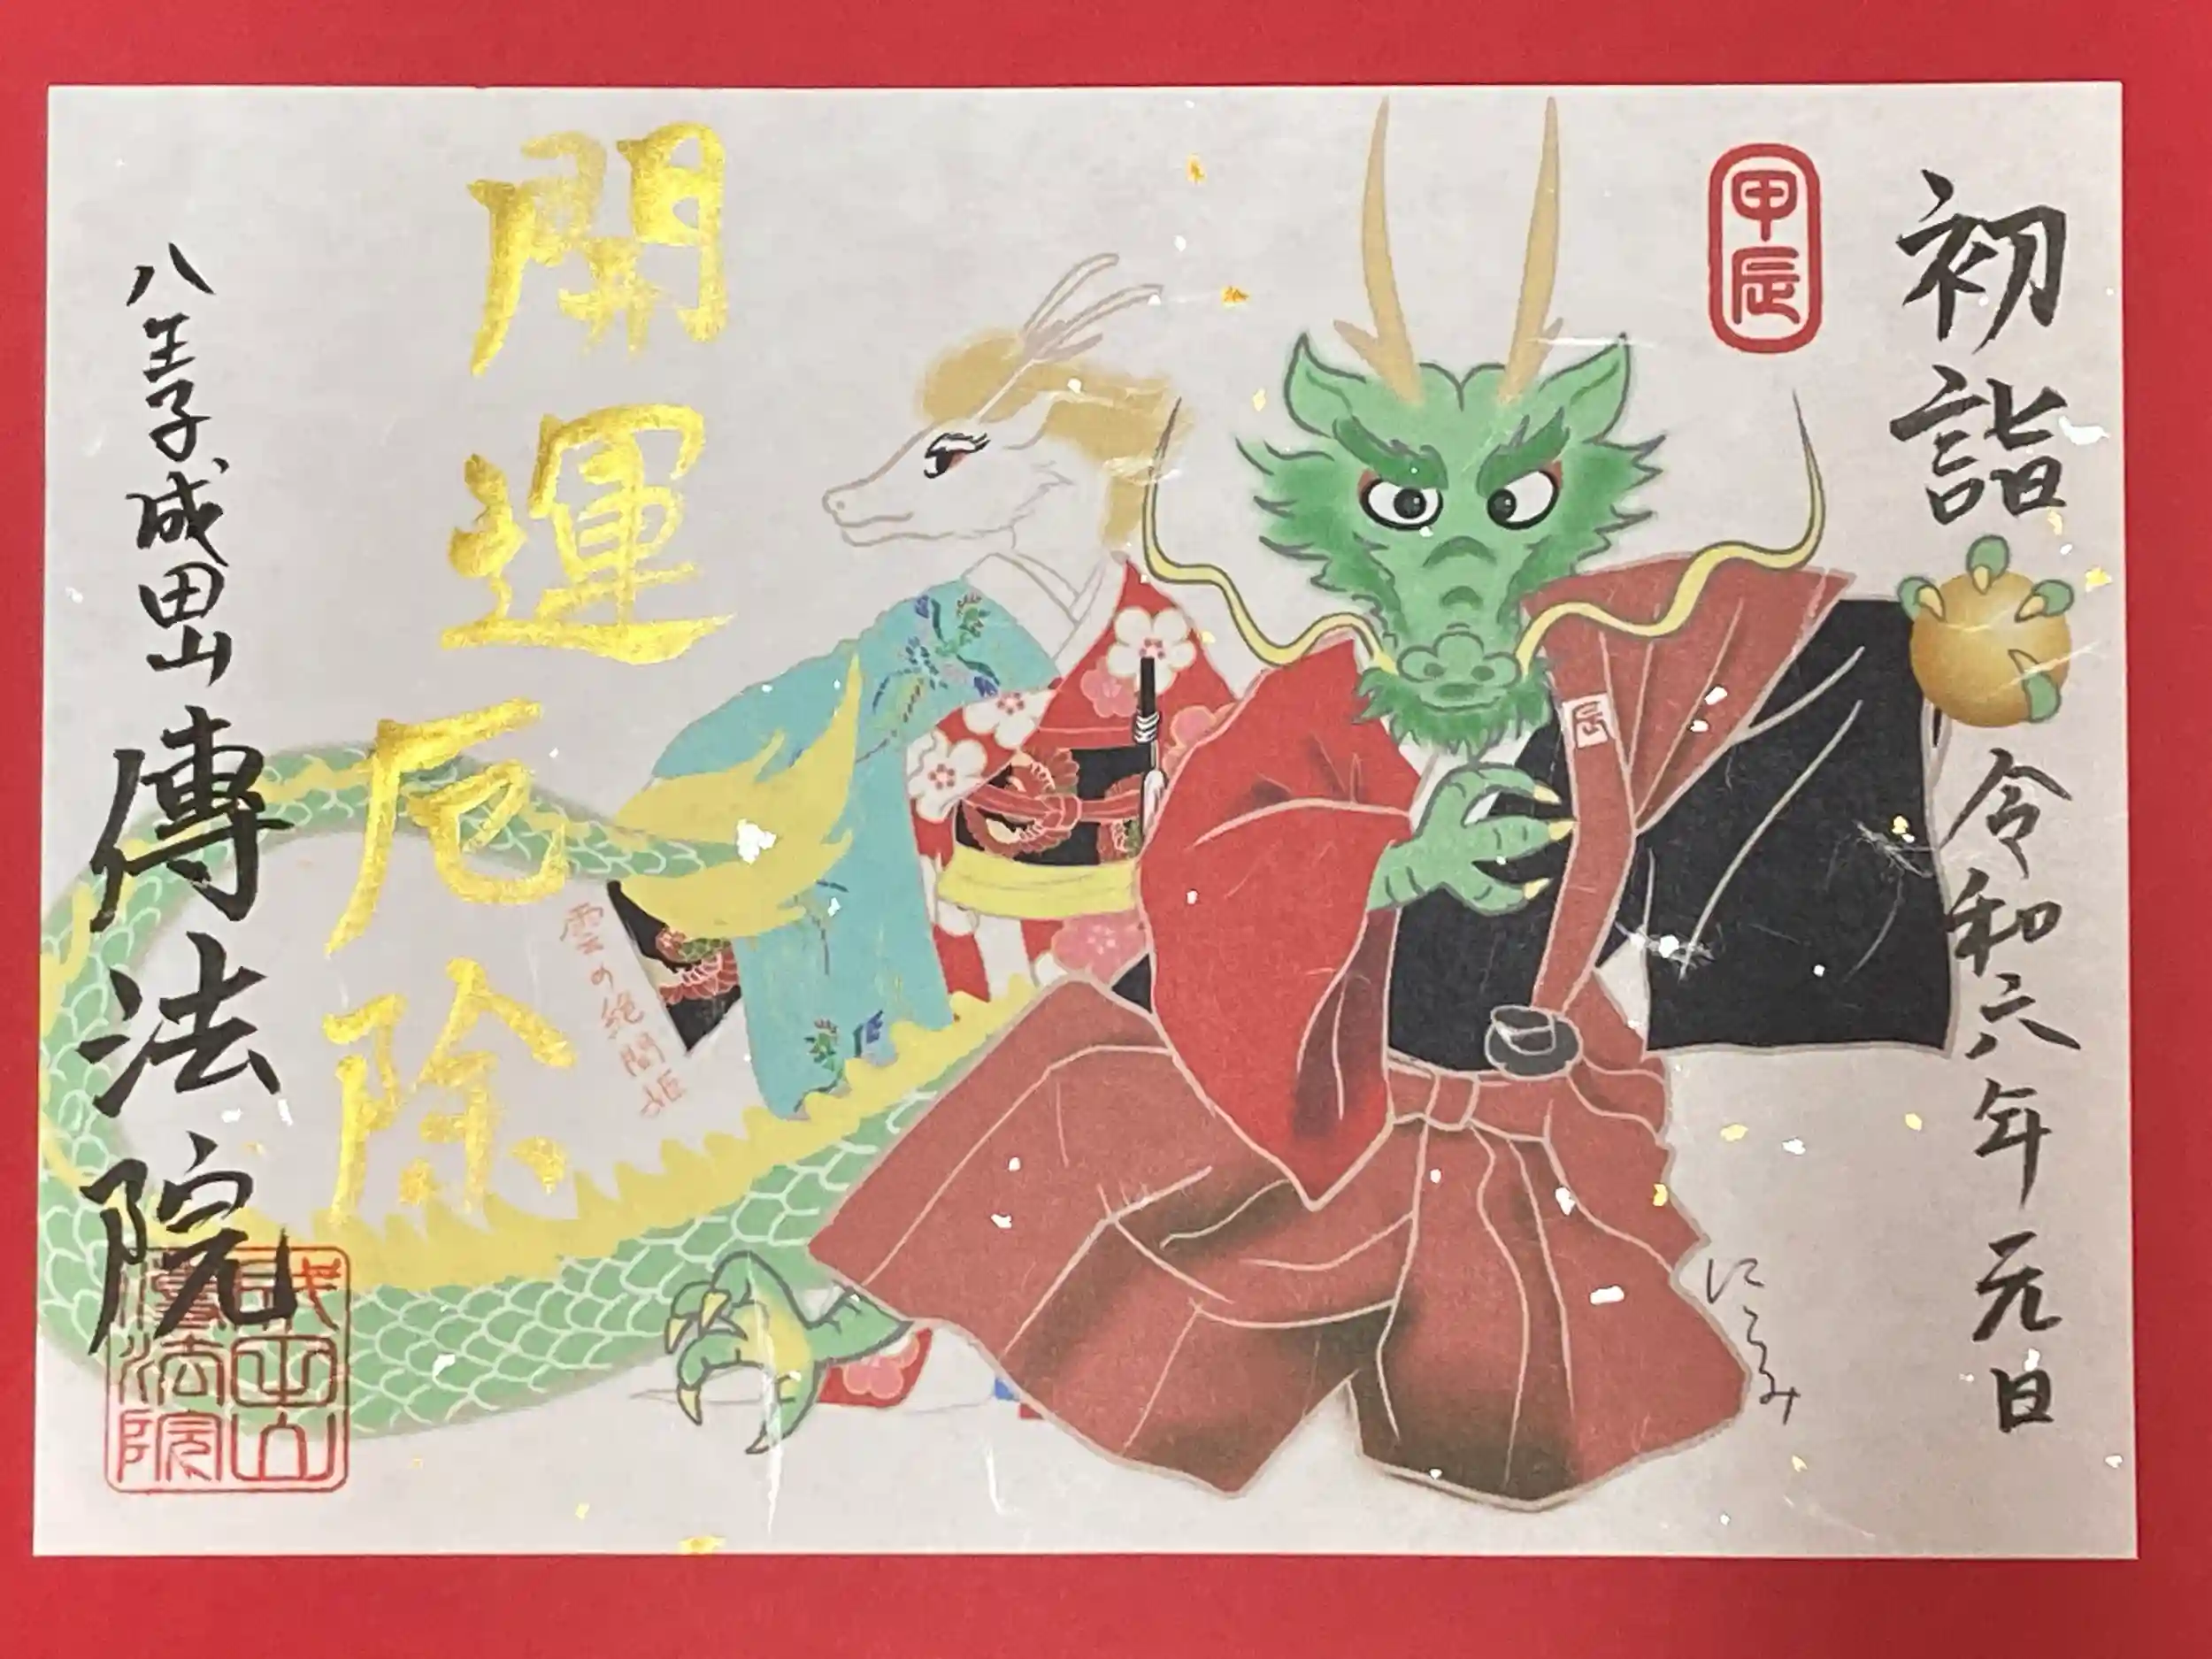 初詣
令和六年元日
甲辰
辰
開運
厄除
雲の絶間姫
八王子成田山
傳法院
成田山
傳法院